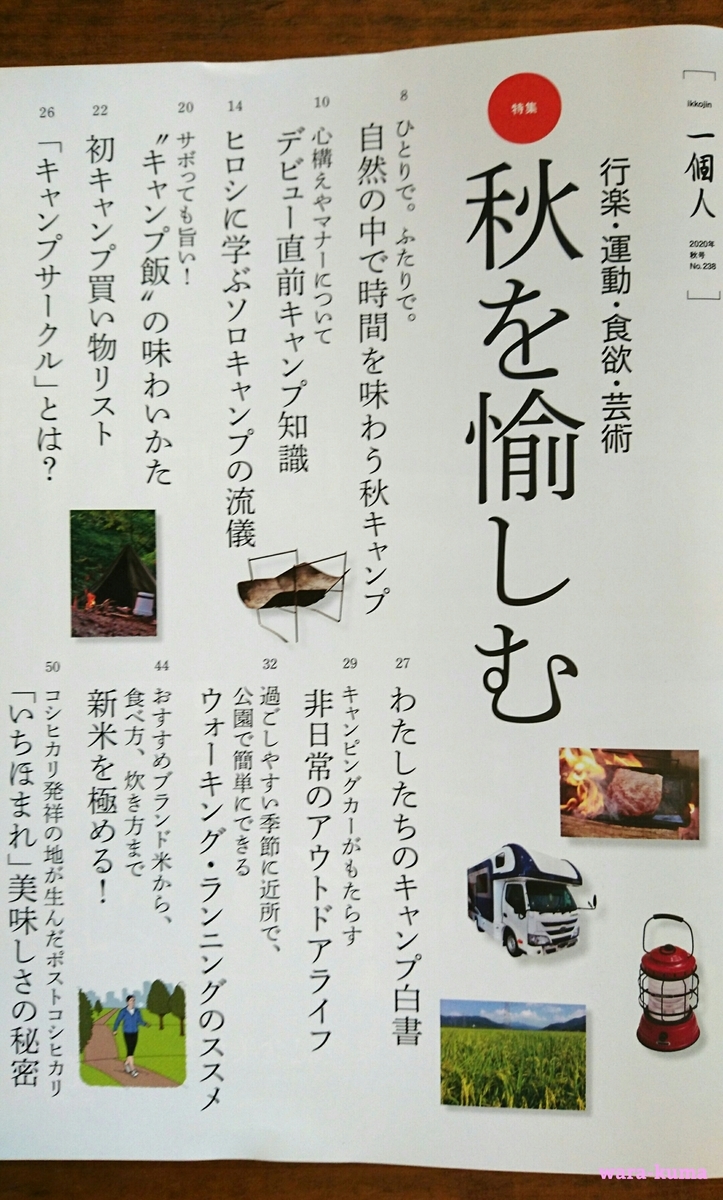 ikkojin
一個人
2020年
秋号
No.238
行楽・運動・食欲・芸術
特集
秋を愉しむ
8
ひとりで。ふたりで。
自然の中で時間を味わう秋キャンプ
10
心構えやマナーについて
デビュー直前キャンプ知識
14
ヒロシに学ぶソロキャンプの流儀
20
サボっても旨い!
〝キャンプ飯〟の味わいかた
22
初キャンプ買い物リスト
26
「キャンプサークル」とは?
27
わたしたちのキャンプ白書
29
キャンピングカーがもたらす
非日常のアウトドアライフ
32
過ごしやすい季節に近所で、
公園で簡単にできる
ウォーキング・ランニングのススメ
44
おすすめブランド米から、
食べ方、炊き方まで
新米を極める!
50
コシヒカリ発祥の地が生んだポストコシヒカリ
「いちほまれ」美味しさの秘密
wara-kuma